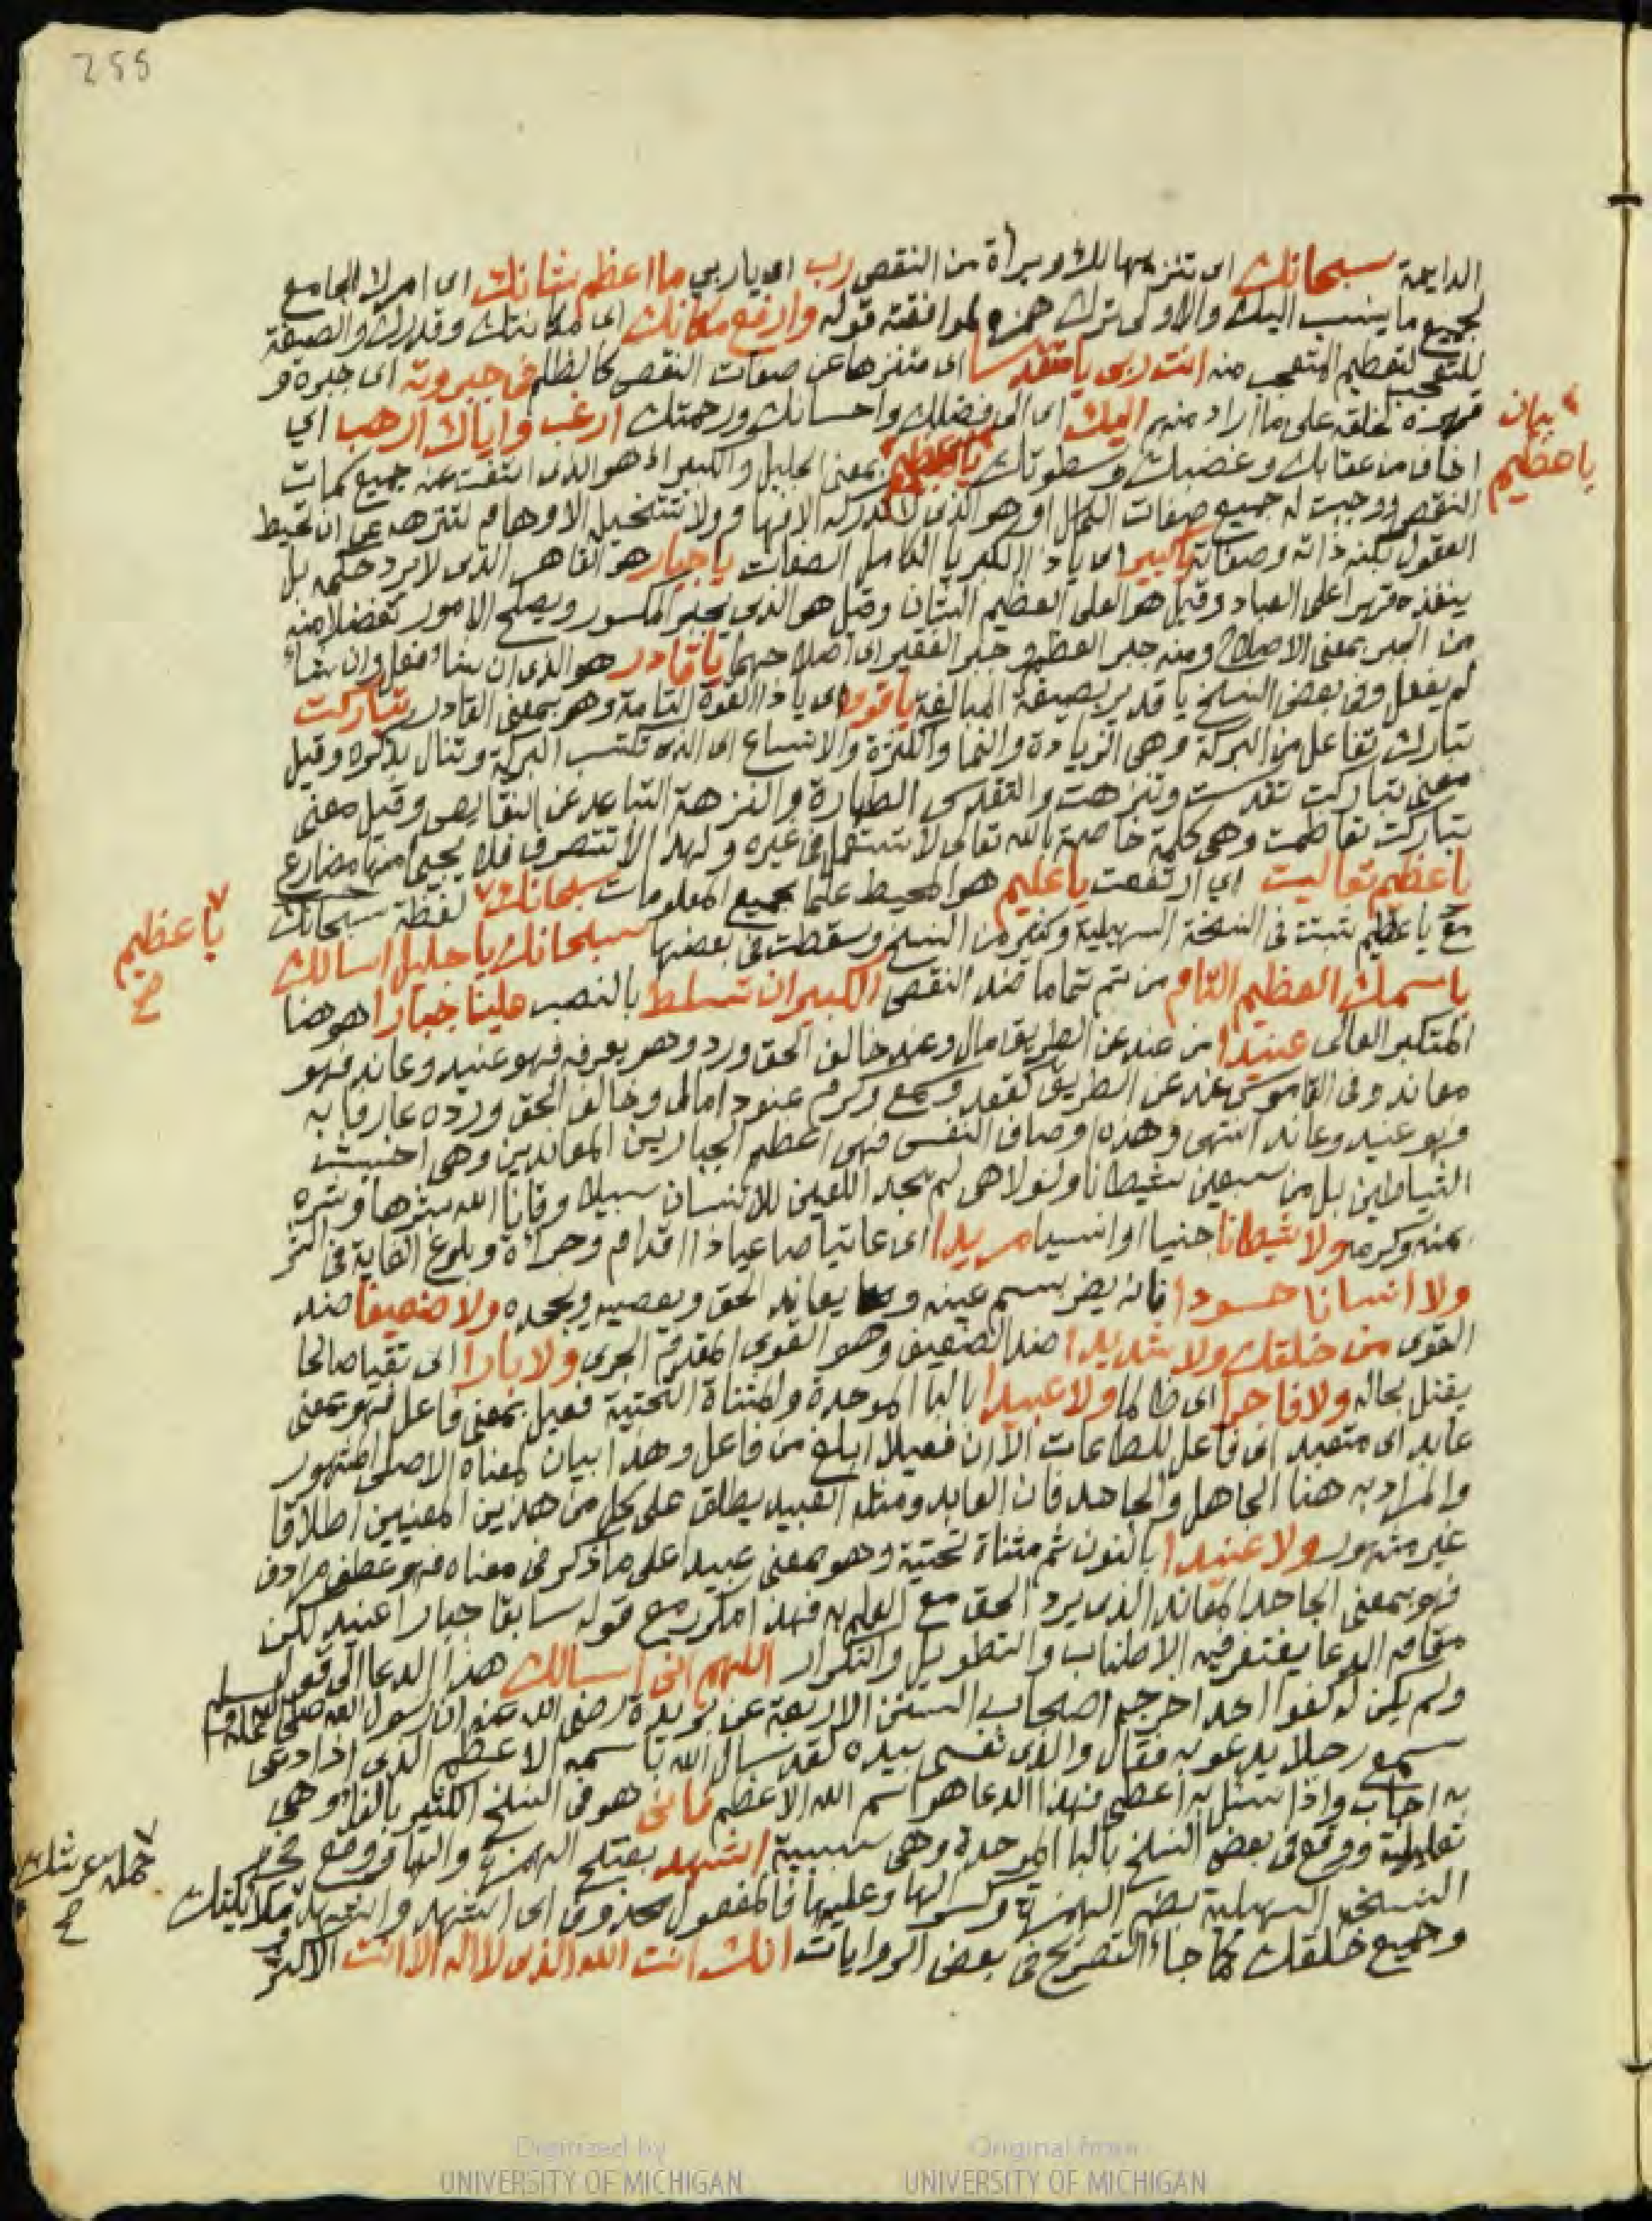 255
الدايمة سبحانك اى تنزيها لك وبرأة من النقص رب اى ياربي ما اعظم شانك اى امرك الجامع
لجميع ما ينسب اليك والاولى ترك همزه لموافقته قوله وارفع مكانك اى مكانتك وقدرك والصيغة
للتعجب لتعظيم المتعجب منه انت ربى يا متقدسا اى متنزها عن صفات النقص كالظلم فى جبروته اى جبره و
قهره لخلقه على ما اراد منهم اليك اى الى فضلك واحسانك ورحمتك ارغب واياك ارهب اي
بيان
يا عظيم
اخاف من عقابك وغضبك وسطوتك يا عظيم بمعنى الجليل والكبير اذ هو الذى انتفت عنه جميع سمات
النقص ووجبت له جميع صفات الكمال او هو الذى لا تدركه الافهام ولا تتخيل الاوهام لتنزهه عن ان تحيط
العقول بكنه ذاته وصفاته يا كبير اى يا ذا الكبريا الكامل الصفات يا جبار هو القاهر الذى لا يرد حكمه بل
ينفذه قهرا على العباد وقيل هو العلى العظيم الشان وقيل هو الذى يجبر المكسور ويصلح الامور تفضلا منه
من الجبر بمعنى الاصلاح ومنه جبر العظم وجبر الفقير اى اصلاحهما يا قادر هو الذى ان شاء فعل وان شاء
لم يفعل وفى بعض النسخ يا قدير بصيغة المبالغة يا قوى اى يا ذا القوة التامة وهو بمعنى القادر تباركت
تبارك تفاعل من البركة وهى الزيادة والنما والكثرة والاتساع اى الذى تكتسب البركة وتنال بذكره وقيل
معنى تباركت تقدست وتنزهت والتقدس الطهارة والنزهة التباعد عن النقايص وقيل معنى
تباركت تعاظمت وهى كلمة خاصة بالله تعالى لا تستعمل فى غيره ولهذا لا تتصرف فلا يجيى منها مضارع
يا عظيم تعاليت اي ارتفعت يا عليم هو المحيط علما بجميع المعلومات سبحانك لفظة سبحانك
يا عظيم
خ
مع يا عظيم ثبتت فى النسخة السهيلية وكثير من النسخ وسقطت فى بعضها سبحانك يا جليل اسالك
باسمك العظيم التام من تم تماما ضد النقص الكبير ان تسلط بالنصب علينا جبارا هو هنا
المتكبر العالى عنيدا من عند عن الطريق مال وعند خالف الحق ورد وهو يعرفه فهو عنيد وعاند فهو
معاند وفى القاموس عند عن الطريق كقعد وسمع وكرم عنودا مال وخالف الحق ورده عارفا به
فهو عنيد وعاند انتهى وهذه اوصاف النفس فهى اعظم الجبارين المعاندين وهى اخبث
الشياطين بل من سبعين شيطانا ولولا هى لم يجد اللعين للانسان سبيلا وقانا الله شرها وشره
بمنه وكرمه ولا شيطانا جنيا او انسيا مريدا اى عاتيا صاعيا ذا اقدام وجرأة وبلوغ الغاية فى الشر
ولا انسانا حسودا فانه يضر بسم عينه و يعاند الحق ويعصيه ويجحده ولا ضعيفا ضد
القوى من خلقك ولا شديدا ضد الضعيف وهو القوى المقدم الجرى ولا بارا اى تقيا صالحا
يقتل بحاله ولا فاجرا اى ظالما ولا عبيدا بالبا الموحدة والمثناة التحتية فعيل بمعنى فاعل فهو بمعنى
عابد اى متعبد اى فاعل للطاعات الا ان فعيلا ابلغ من فاعل وهذا بيان لمعناه الاصلى المشهور
والمراد به هنا الجاهل والجاحد فان العابد ومثله العبيد يطلق على كل من هذين المعنيين اطلاقا
غير مشهور ولا عنيدا بالنون ثم مثناة تحتية وهو بمعنى عبيدا على ما ذكر فى معناه فهو عطف مرادف
فهو بمعنى الجاحد المعاند الذى يرد الحق مع العلم به فهذا مكرر مع قوله سابقا جبارا عنيد لكن
مقام الدعا يغتفر فيه الاطناب والتطويل والتكرار اللهم انى اسالك هذا الدعا الى قوله
ولم يكن له كفوا احد اخرجه اصحاب السنن الاربعة عن بريدة رضى الله عنه ان رسول الله صلى الله عليه وسلم
سمع رجلا يدعو به فقال والذى نفسى بيده لقد سال الله باسمه الاعظم الذى اذا دعى
به اجاب واذا سئل به اعطى فهذا الدعا هو اسم الله الاعظم فانى هو فى النسخ الكثير بالفا وهى
تعليلية ووقع فى بعض النسخ بالبا الموحدة وهى سببية اشهد بفتح الهمزة والها ووقع فى
حملة عرشك
خ
النسخة السهيلية بضم الهمزة وكسر الها وعليها فالمفعول محذوف اى اشهدك واشهد ملائكتك
وجميع خلقك كما جاء التصريح فى بعض الروايات انك انت الله الذى لا اله الا انت الاكثر
Digitized by
UNIVERSITY OF MICHIGAN
Original from
UNIVERSITY OF MICHIGAN